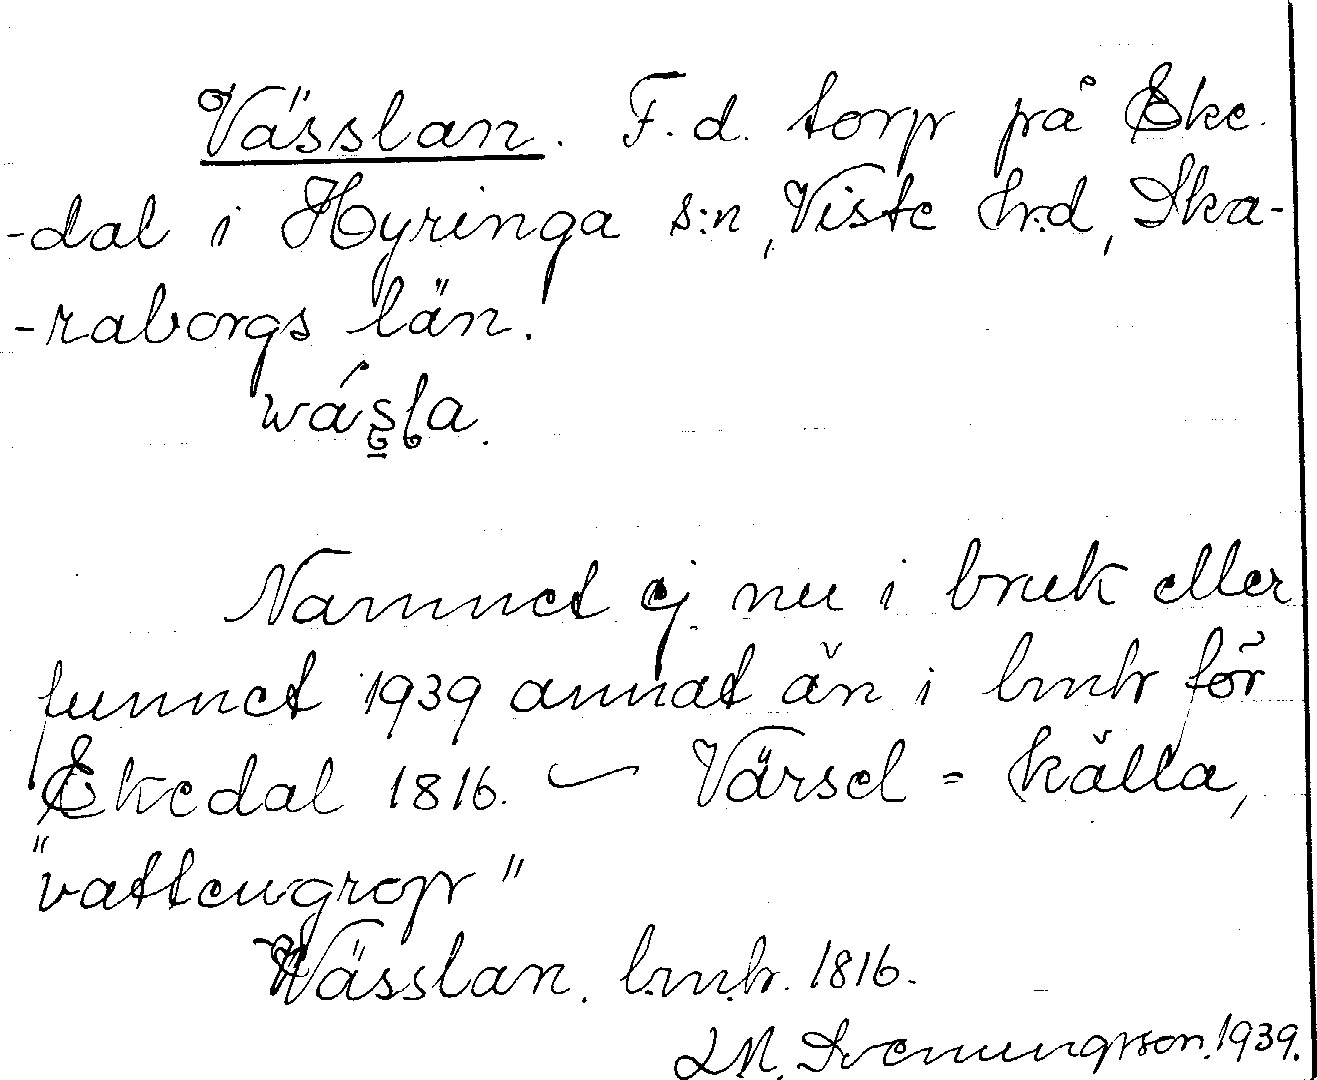 Vässlan. F. d. torp på Eke-
-dal i Hyringa s:n, Viste hrd, Ska-
-raborgs län.
wásla.
Namnet ej nu i bruk eller
funnet 1939 annat än i lmh för
Ekedal 1816. — Värsel = källa,
"vattengrop"
Wässlan. l.m.h. 1816.
Svenungsson. 1939.